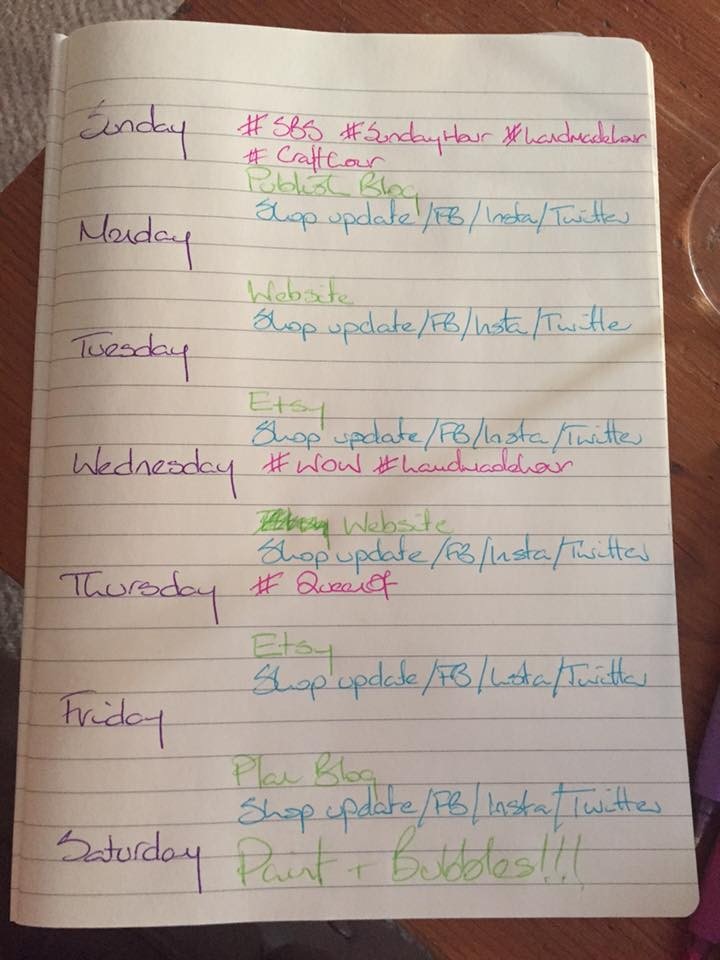 Sunday #SBS #SundayHour #handmadehour
#CraftHour
Publish Blog
Shop update/FB/Insta/Twitter
Monday
Website
Shop update/FB/Insta/Twitter
Tuesday
Etsy
Shop update/FB/Insta/Twitter
Wednesday #WOW #handmadehour
Website
Shop update/FB/Insta/Twitter
Thursday # QueenOf
Etsy
Shop update/FB/Insta/Twitter
Friday
Plan Blog
Shop update/FB/Insta/Twitter
Saturday Paint + Bubbles!!!